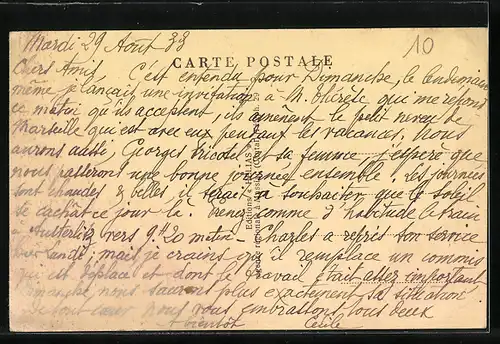 Mardi 29 Août 33
10
CARTE POSTALE
Chers Amis, C'est entendu pour Dimanche, le lendemain
même je lançais une invitation à M. Thérèse qui me répond
ce matin qu'ils acceptent, ils amènent le petit neveu de
Marseille qui est avec eux pendant les vacances, Nous
aurons aussi, Georges Nicolet & sa femme, j'espère que
nous passerons une bonne journée ensemble. Les journées
sont chaudes & belles il serait à souhaiter que le soleil
se cachât ce jour là. Prenez comme d'habitude le train
à Austerlitz vers 9h20 matin - Charles a repris son service
mais je crains qu'il remplace un commis
qui est déplacé et dont le travail était assez important
Dimanche, nous saurons plus exactement sa situation
tout cœur nous vous embrassons tous deux
à bientôt Cécile
Editions